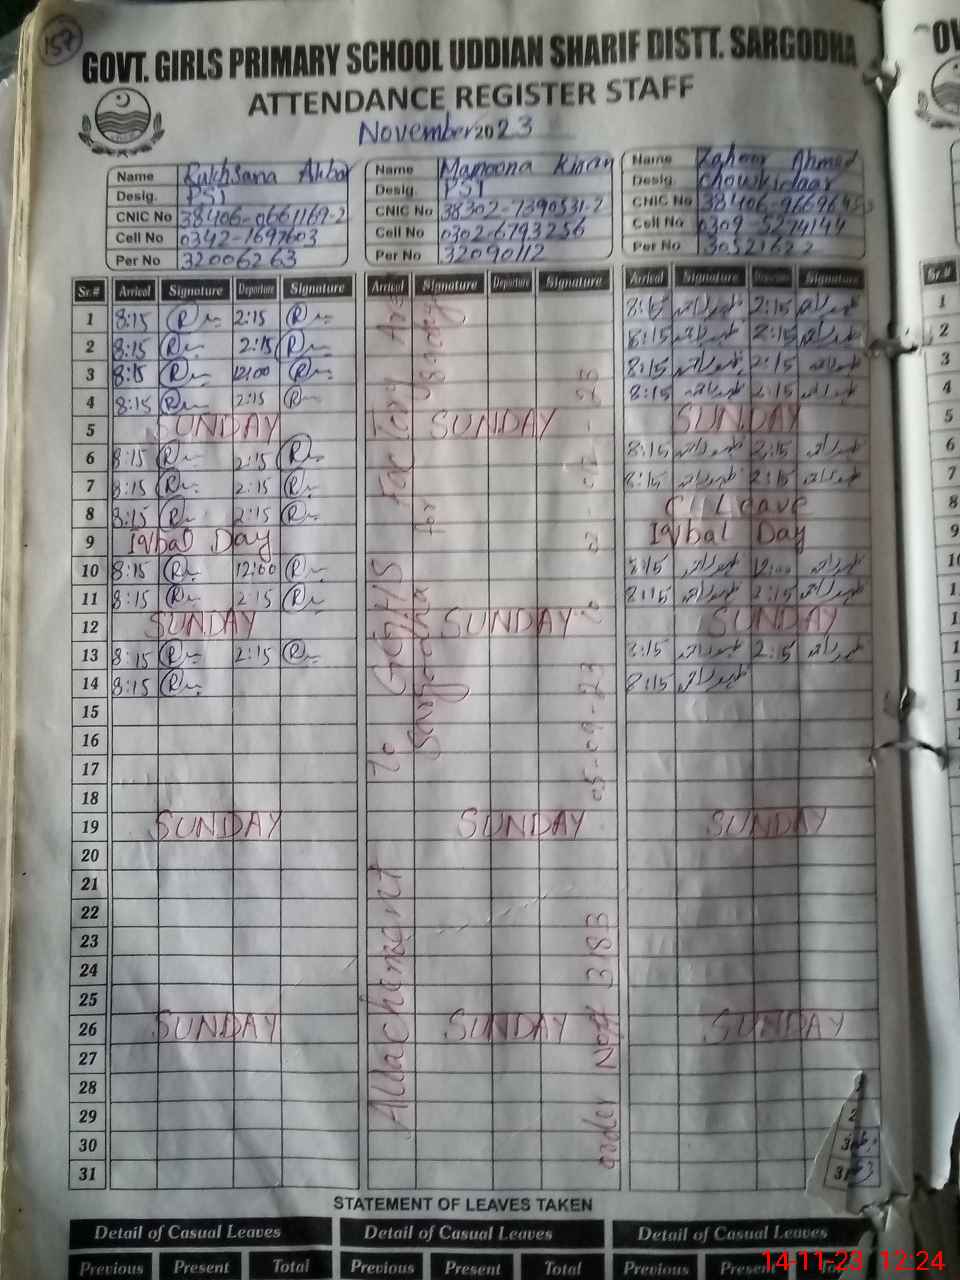 157
GOVT. GIRLS PRIMARY SCHOOL UDDIAN SHARIF DISTT. SARGODHA
ATTENDANCE REGISTER STAFF
November 2023
Name Rukhsana Akbar
Desig. PST
CNIC No 38406-0661169-2
Cell No 0342-1697603
Per No 32006263
Name Mamoona Kiran
Desig. PST
CNIC No 38302-7390531-2
Cell No 0302-6793256
Per No 32090112
Name Zaheer Ahmed
Desig. Chowkidaar
CNIC No 38406-9669645
Cell No 0309-5274144
Per No 3052162
Sr.# Arrival Signature Departure Signature Arrival Signature Departure Signature Arrival Signature Departure Signature
1 8:15 2:15 8:15 2:15
2 8:15 2:15 8:15 2:15
3 8:15 12:00 8:15 2:15
4 8:15 2:15 8:15 2:15
5 SUNDAY SUNDAY SUNDAY
6 8:15 2:15 8:15 2:15
7 8:15 2:15 8:15 2:15
8 8:15 2:15 C/Leave
9 Iqbal Day Iqbal Day
10 8:15 12:00 8:15 12:00
11 8:15 2:15 8:15 2:15
12 SUNDAY SUNDAY SUNDAY
13 8:15 2:15 8:15 2:15
14 8:15 8:15
15
16
17
18
19 SUNDAY SUNDAY SUNDAY
20
21
22
23
24
25
26 SUNDAY SUNDAY SUNDAY
27
28
29
30
31
Attachment To GGHS Factory Area
Sargodha for
order No 3183 05-09-23 to
STATEMENT OF LEAVES TAKEN
Detail of Casual Leaves Detail of Casual Leaves Detail of Casual Leaves
Previous Present Total Previous Present Total Previous Present
14-11-23 12:24